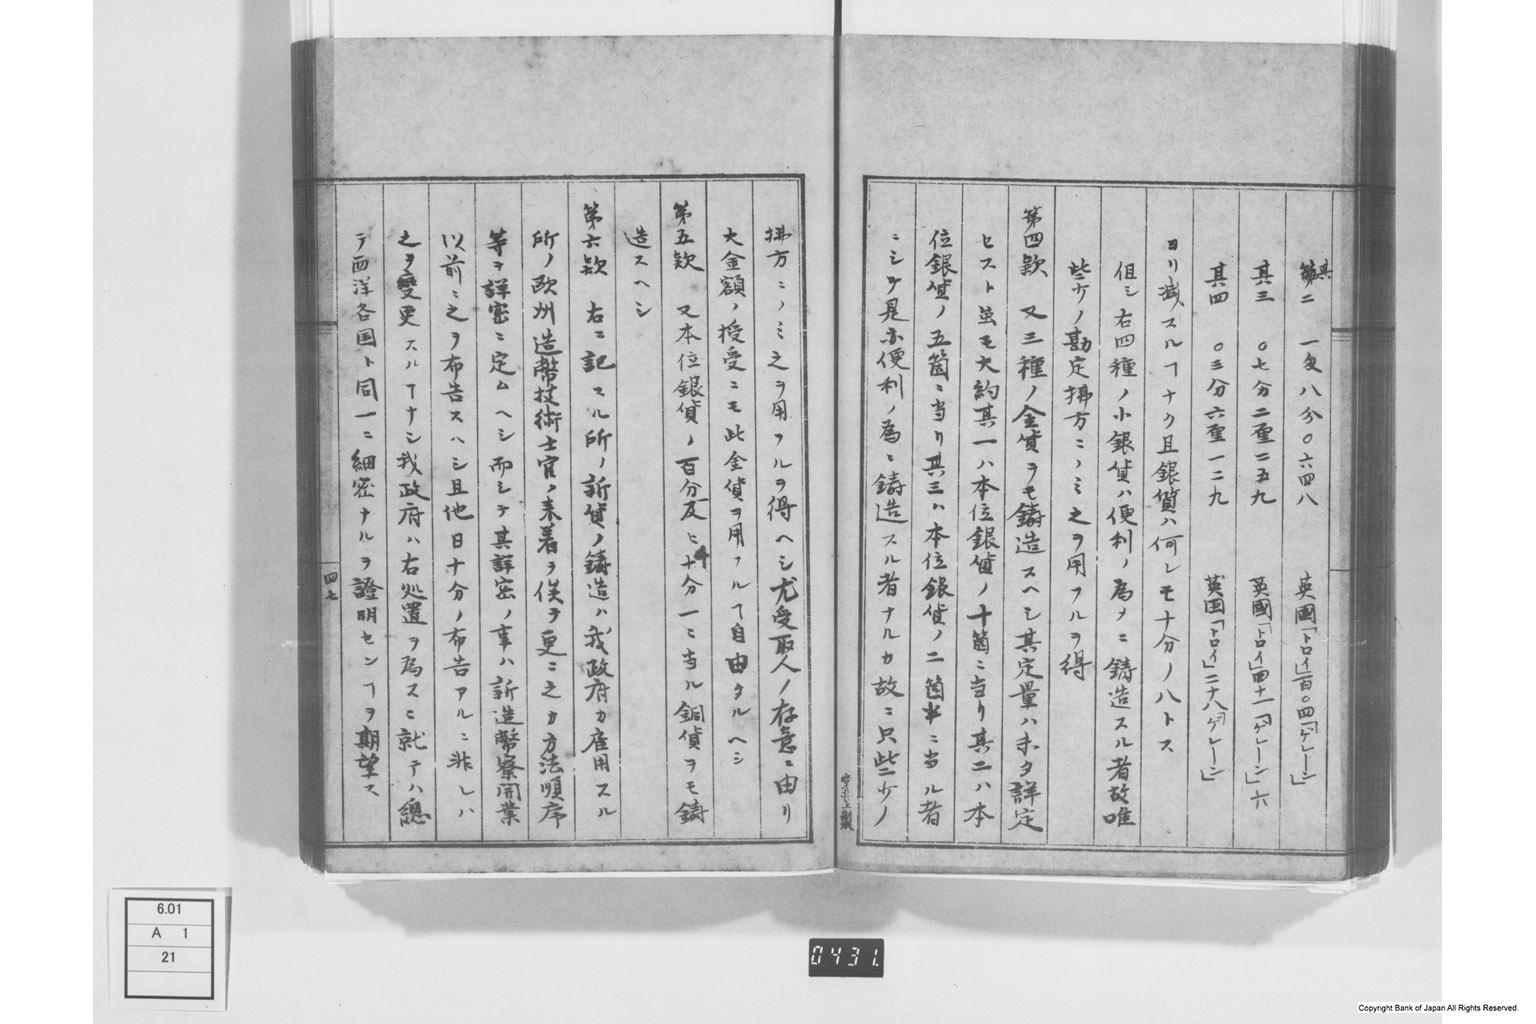 其二　一匁八分〇六四八　英國「トロイ」百〇四「ゲレーン」
其三　〇七分二厘二五九　英國「トロイ」四十一「ゲレーン」六
其四　〇三分六厘一二九　英国「トロイ」二十八「ゲレーン」
ヨリ減スルヿナク且銀貨ハ何レモ十分ノ八トス
但シ右四種ノ小銀貨ハ便利ノ為メニ鋳造スル者故唯
些少ノ勘定拂方ニノミ之ヲ用フルヲ得
第四款　又三種ノ金貨ヲモ鋳造スヘシ其定量ハ未タ詳定
セスト虽モ大約其一ハ本位銀貨ノ十箇ニ当リ其二ハ本
位銀貨ノ五箇ニ当リ其三ハ本位銀貨ノ二箇半ニ当ル者
ニシテ是亦便利ノ為ニ鋳造スル者ナルカ故ニ只些少ノ
拂方ニノミ之ヲ用フルヲ得ヘシ尤受取人ノ存意ニ由リ
大金額ノ授受ニモ此金貨ヲ用フルヿ自由タルヘシ
第五款　又本位銀貨ノ百分及ヒ千分一ニ当ル銅貨ヲモ鋳
造スヘシ
第六款　右ニ記スル所ノ新貨ノ鋳造ハ我政府カ雇用スル
所ノ欧州造幣技術士官ノ来着ヲ俟ヲ更ニ之カ方法順序
等ヲ詳密ニ定ムヘシ而シテ其詳密ノ事ハ新造幣寮開業
以前ニ之ヲ布告スヘシ且他日十分ノ布告アルニ非レハ
之ヲ變更スルヿナシ我政府ハ右処置ヲ為スニ就テハ總
テ西洋各国ト同一ニ細密ナルヲ證明センヿヲ期望ス
四七
6.01
A 1
21
0431.
Copyright Bank of Japan All Rights Reserved.